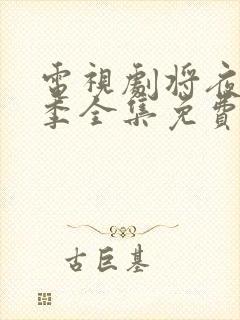 電視劇將夜
季全集免費
古巨基